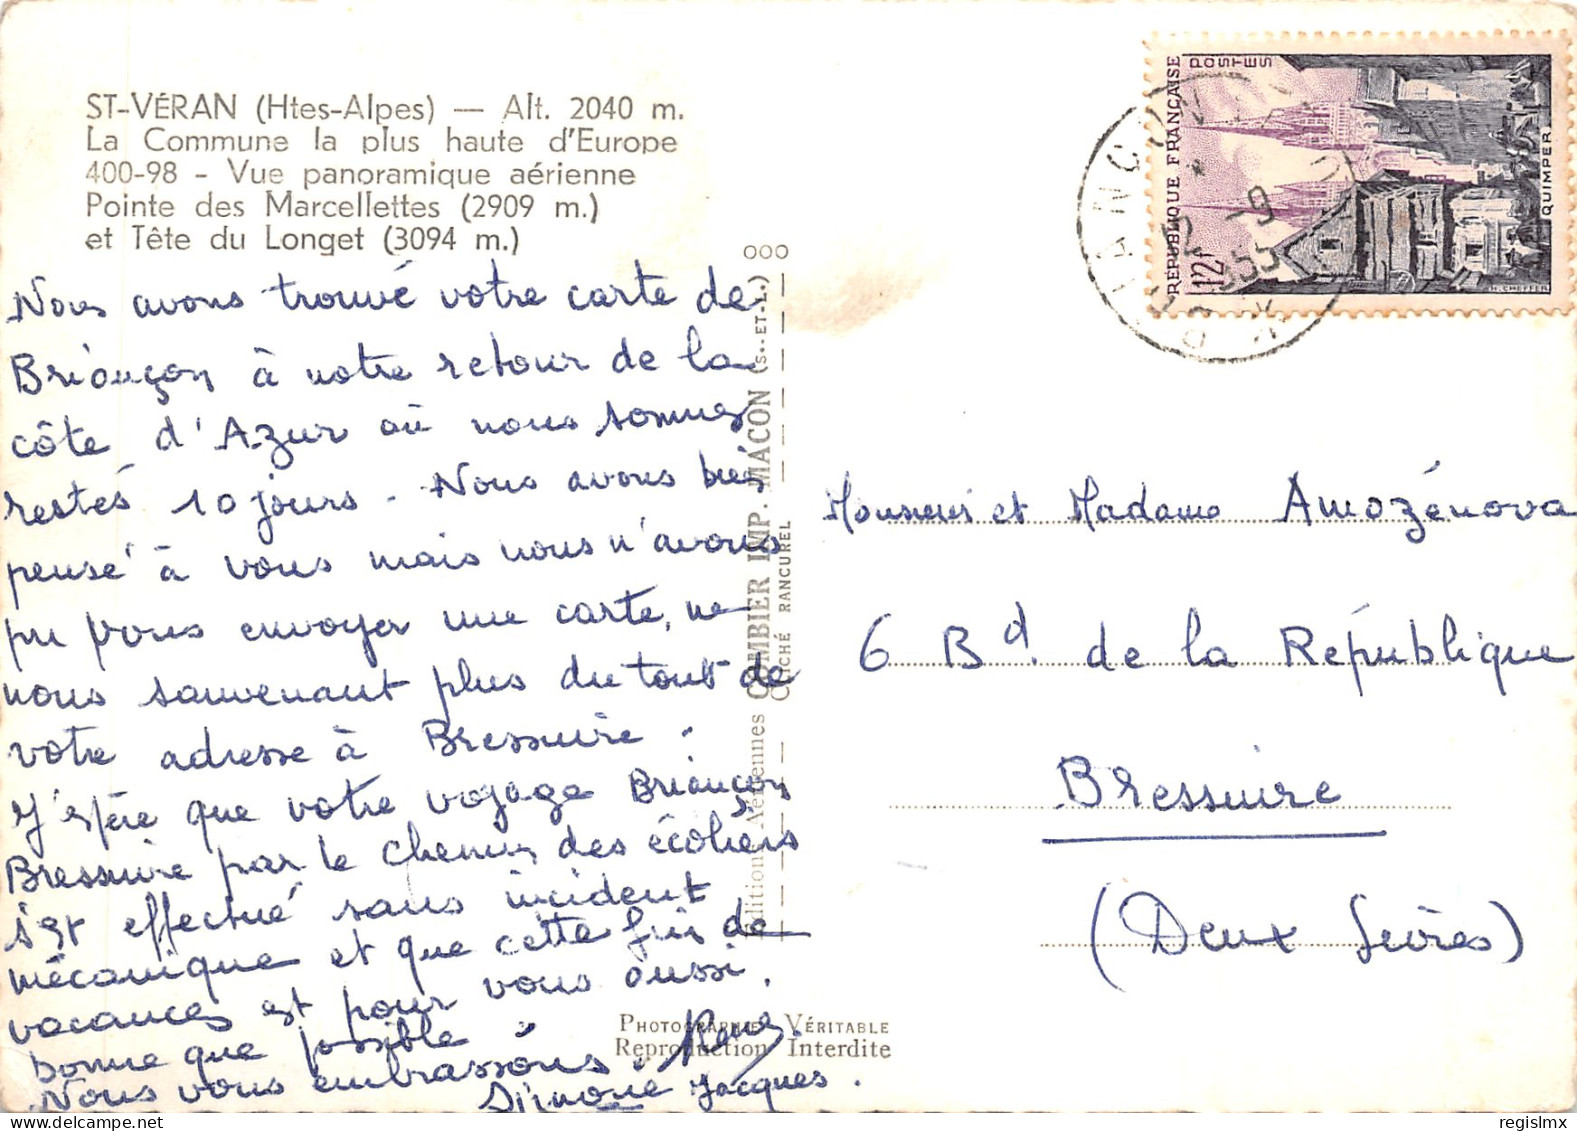 ST-VÉRAN (Htes-Alpes) — Alt. 2040 m.
La Commune la plus haute d'Europe
400-98 - Vue panoramique aérienne
Pointe des Marcellettes (2909 m.)
et Tête du Longet (3094 m.)
Nous avons trouvé votre carte de
Briançon à notre retour de la
côte d'Azur où nous sommes
restés 10 jours - Nous avons bien
pensé à vous mais nous n'avons
pu vous envoyer une carte, ne
nous souvenant plus du tout de
votre adresse à Bressuire.
J'espère que votre voyage Briançon
Bressuire par le chemin des écoliers
s'est effectué sans incident
mécanique et que cette fin de
vacances est pour vous aussi
bonne que possible.
Nous vous embrassons. René
Simone Jacques.
ooo
Editions Aériennes COMBIER IMP. MACON (S.-ET-L.)
CLICHÉ RANCUREL
PHOTOGRAPHIE VÉRITABLE
Reproduction Interdite
RÉPUBLIQUE FRANÇAISE
POSTES
12F
QUIMPER
H. CHEFFER
BRIANÇON
12 -9
1955
Monsieur et Madame Amozénova
6 Bd. de la République
Bressuire
(Deux Sèvres)
regislmx